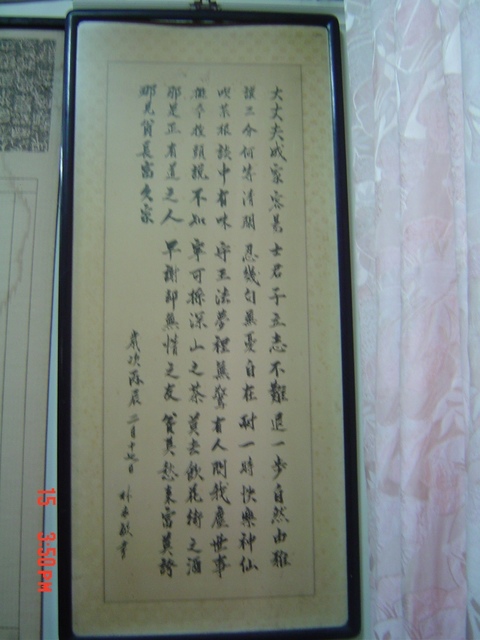 大丈夫成家容易士君子立志不難退一步自然由雅
讓三分何等清閒忍幾句無憂自在耐一時快樂神仙
喫菜根談中有味守王法夢裡無驚有人問我塵世事
擺手搖頭說不知寧可採深山之茶莫去飲花街之酒
那是正有道之人早謝却無情之友貧莫愁來富莫誇
那見貧長富久家
歲次庚辰二月十七日 林
15 3:50 PM